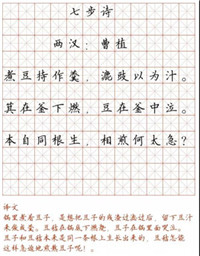 七步诗
两汉：曹植
煮豆持作羹，漉豉以为汁。
萁在釜下燃，豆在釜中泣。
本自同根生，相煎何太急？
译文
锅里煮着豆子，是想把豆子的残渣过滤出去，留下豆汁
来做成羹。豆秸在锅底下燃烧，豆子在锅里面哭泣。
豆子和豆秸本来是同一条根上生长出来的，豆秸怎能
这样急迫地煎熬豆子呢！